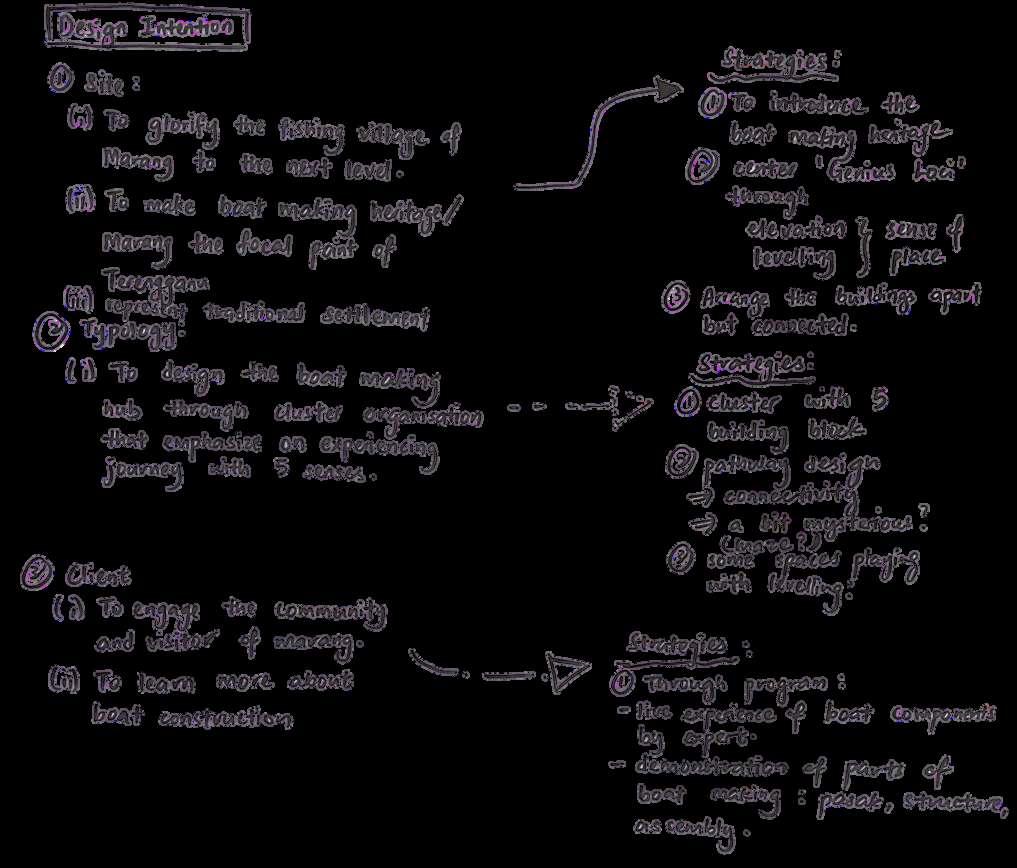 Design Intention
① Site :
(i) To glorify the fishing village of
Marang to the next level.
(ii) To make boat making heritage/
Marang the focal point of
Terengganu
(iii) represent traditional settlement
② Typology:
(i) To design the boat making
hub through cluster organisation
that emphasize on experiencing
journey with 5 senses.
③ Client
(i) To engage the community
and visitor of marang.
(ii) To learn more about
boat construction
Strategies :
① To introduce the
boat making heritage
② center 'Genius Loci'
through
elevation } sense of
levelling } place
③ Arrange the buildings apart
but connected.
Strategies :
① cluster with 5
building block
② pathway design
⇒ connectivity
⇒ a bit mysterious?
(maze?)
③ some spaces playing
with levelling.
Strategies :
① Through program :
- live experience of boat components
by expert.
- demonstration of parts of
boat making : pasak, structure,
assembly.